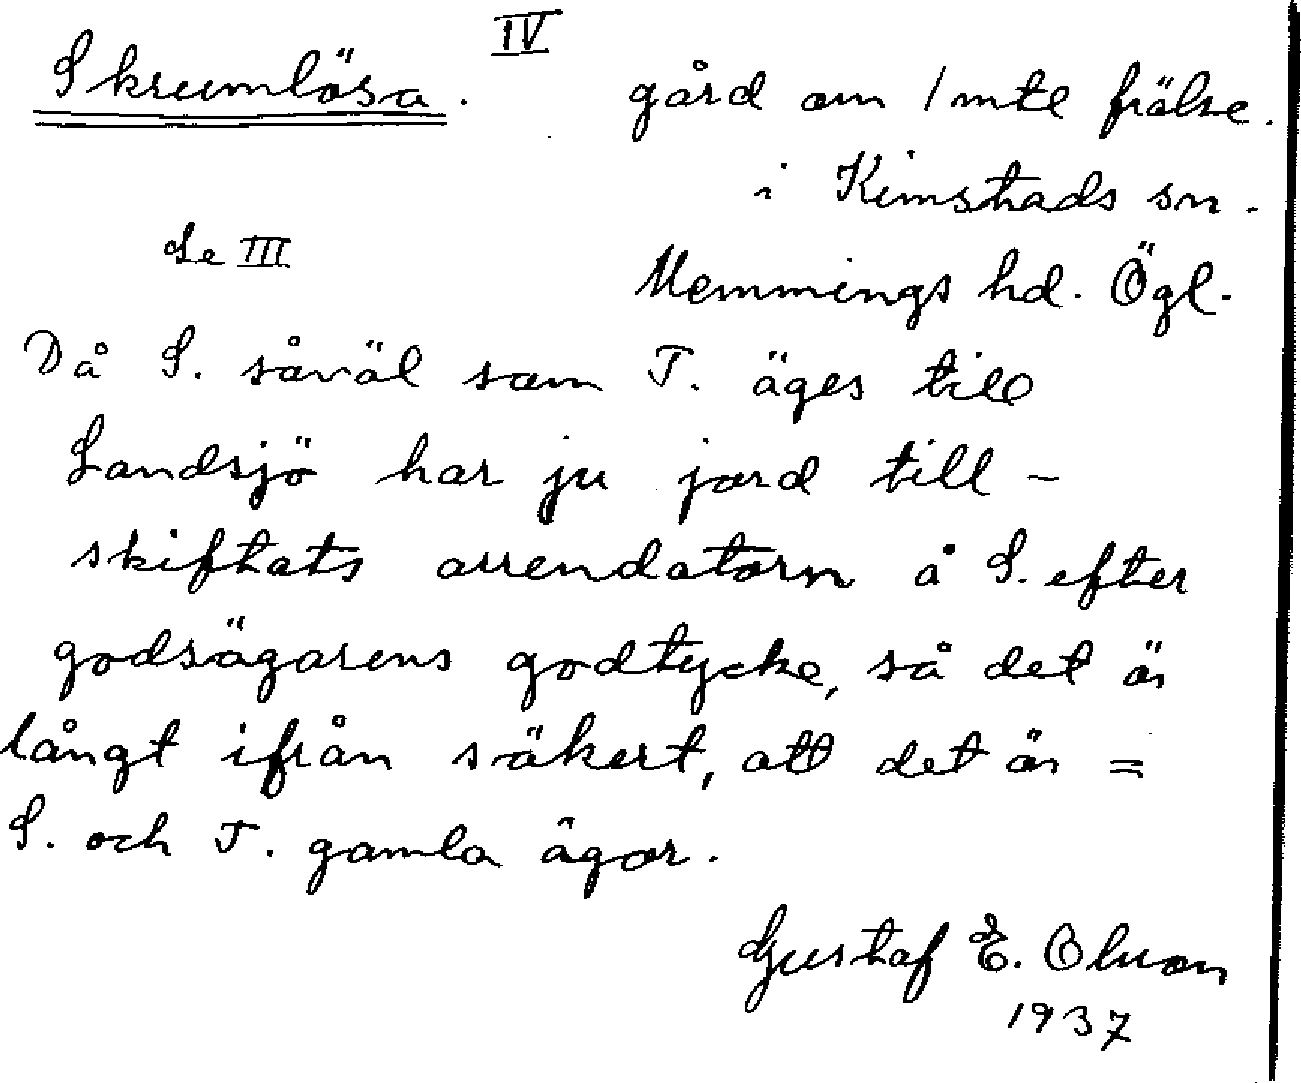 IV
Skrumlösa. gård om 1 mtl frälse.
i Kimstads sn.
Se III
Memmings hd. Ögl.
Då S. såväl som T. äges till
Landsjö har ju jord till-
skiftats arrendatorn å S. efter
godsägarens godtycke, så det är
långt ifrån säkert, att det är =
S. och T. gamla ägor.
Gustaf E. Olsson
1937